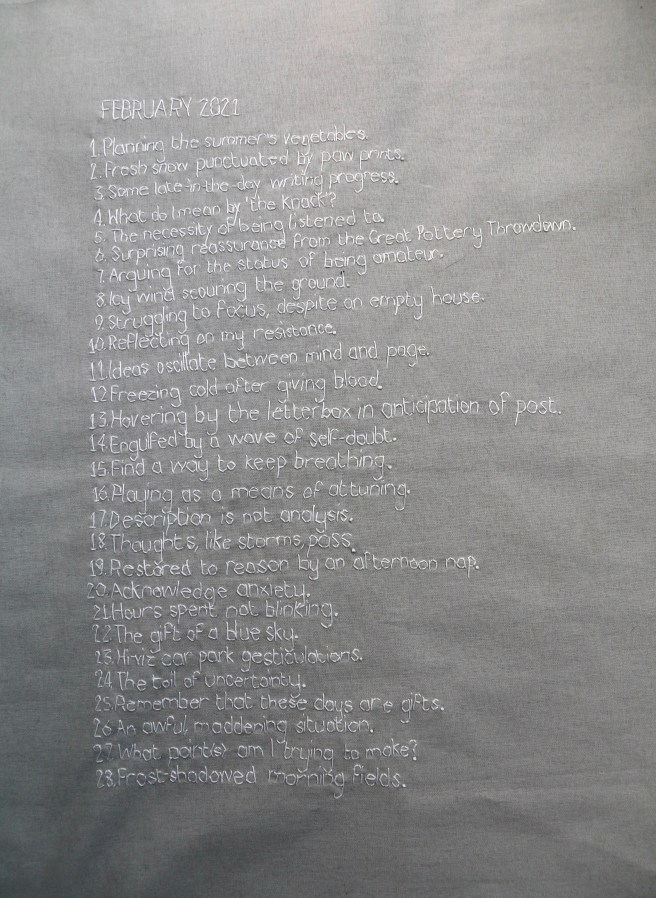 FEBRUARY 2021
1. Planning the summer's vegetables.
2. Fresh snow punctuated by paw prints.
3. Some late-in-the-day writing progress.
4. What do I mean by 'the knack'?
5. The necessity of being listened to.
6. Surprising reassurance from the Great Pottery Throwdown.
7. Arguing for the status of being amateur.
8. Icy wind scouring the ground.
9. Struggling to focus, despite an empty house.
10. Reflecting on my resistance.
11. Ideas oscillate between mind and page.
12. Freezing cold after giving blood.
13. Hovering by the letterbox in anticipation of post.
14. Engulfed by a wave of self-doubt.
15. Find a way to keep breathing.
16. Playing as a means of attuning.
17. Description is not analysis.
18. Thoughts, like storms, pass.
19. Restored to reason by an afternoon nap.
20. Acknowledge anxiety.
21. Hours spent not blinking.
22. The gift of a blue sky.
23. Hi-viz car park gesticulations.
24. The toll of uncertainty.
25. Remember that these days are gifts.
26. An awful, maddening situation.
27. What point(s) am I trying to make?
28. Frost-shadowed morning fields.